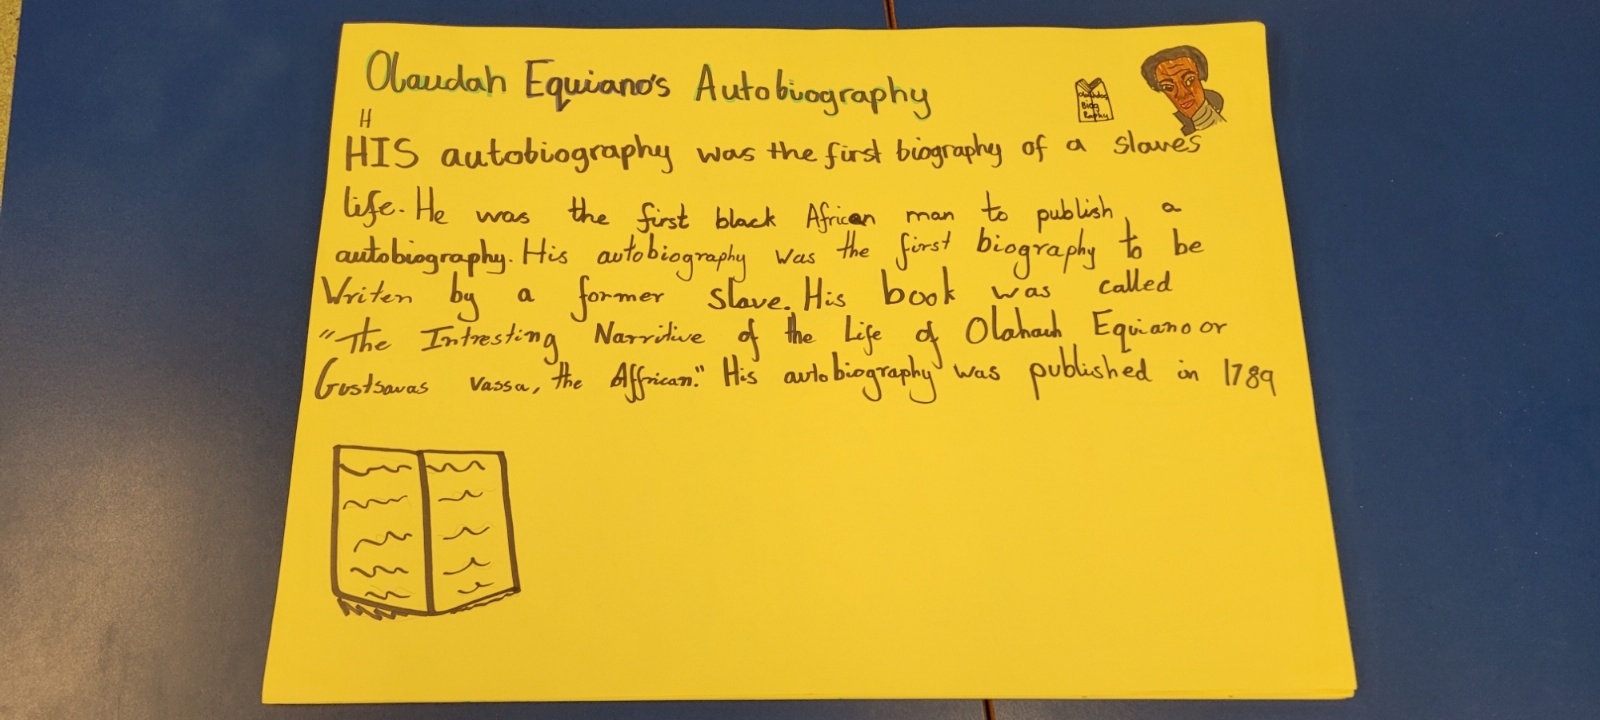 Olaudah Equiano's Autobiography
H
HIS autobiography was the first biography of a slaves
life. He was the first black African man to publish a
autobiography. His autobiography was the first biography to be
Writen by a former slave. His book was called
"The Intresting Narritive of the Life of Olahauh Equiano or
Gustsavas Vassa, the Affrican." His autobiography was published in 1789
Biog
Raphy